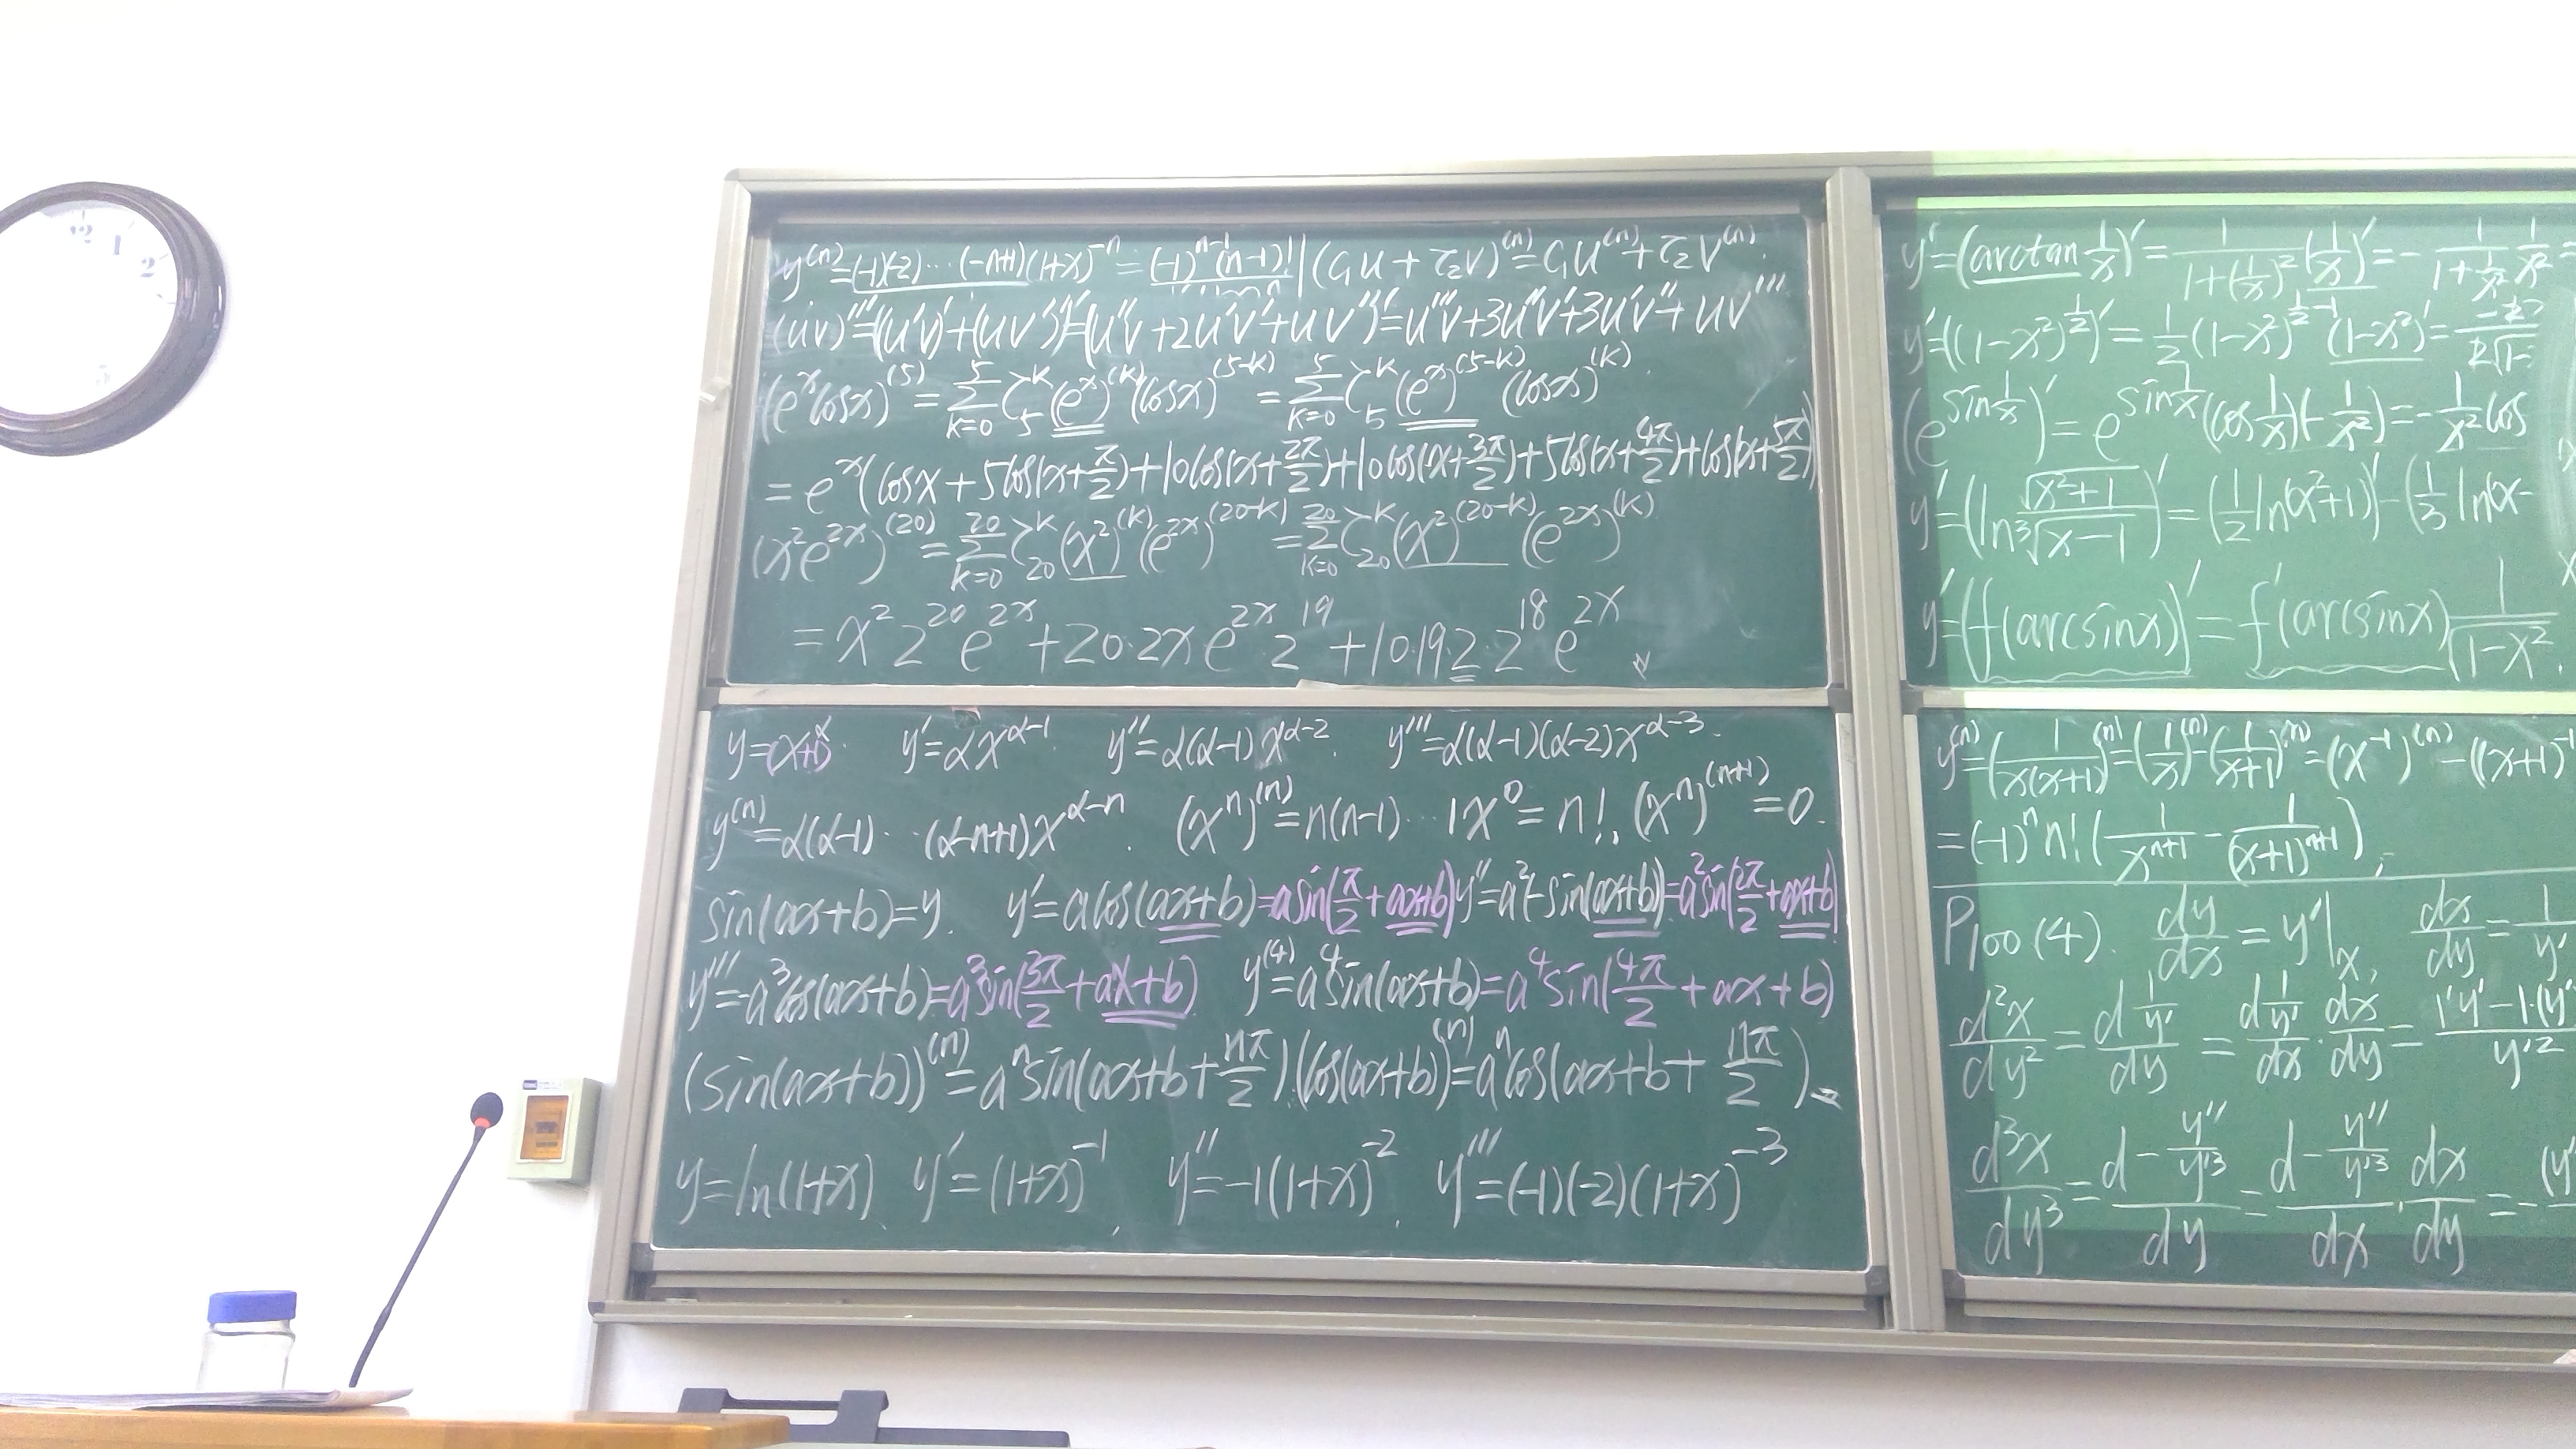 y^{(n)}=(-1)(-2)...(-n+1)(1+x)^{-n} = (-1)^{n-1}(n-1)! | (C_1u+C_2v)^{(n)}=C_1u^{(n)}+C_2v^{(n)}.
(uv)'''=(u'v)'+(uv')')'=(u''v+2u'v'+uv'')'=u'''v+3u''v'+3u'v''+uv'''
(e^x cosx)^{(5)} = \sum_{k=0}^{5} C_5^k (e^x)^{(k)}(cosx)^{(5-k)} = \sum_{k=0}^{5} C_5^k (e^x)^{(5-k)}(cosx)^{(k)}.
= e^x(cosx+5cos(x+\frac{π}{2})+10cos(x+\frac{2π}{2})+10cos(x+\frac{3π}{2})+5cos(x+\frac{4π}{2})+cos(x+\frac{5π}{2}))
(x^2e^{2x})^{(20)} = \sum_{k=0}^{20} C_{20}^k (x^2)^{(k)}(e^{2x})^{(20-k)} = \sum_{k=0}^{20} C_{20}^k (x^2)^{(20-k)}(e^{2x})^{(k)}
= x^2 2^{20} e^{2x}+20·2xe^{2x}·2^{19}+10·19·2·2^{18}e^{2x}
y=(x+1)^α. y'=αx^{α-1}. y''=α(α-1)x^{α-2}. y'''=α(α-1)(α-2)x^{α-3}.
y^{(n)}=α(α-1)...(α-n+1)x^{α-n}. (x^n)^{(n)}=n(n-1)...1x^0=n!. (x^n)^{(n+1)}=0.
sin(ax+b)=y. y'=acos(ax+b)=asin(\frac{π}{2}+ax+b) y''=a^2(-sin(ax+b))=a^2sin(\frac{2π}{2}+ax+b)
y'''=-a^3cos(ax+b)=a^3sin(\frac{3π}{2}+ax+b) y^{(4)}=a^4sin(ax+b)=a^4sin(\frac{4π}{2}+ax+b)
(sin(ax+b))^{(n)}=a^n sin(ax+b+\frac{nπ}{2}).(cos(ax+b))^{(n)}=a^n cos(ax+b+\frac{nπ}{2}).
y=ln(1+x). y'=(1+x)^{-1}, y''=-1(1+x)^{-2}. y'''=(-1)(-2)(1+x)^{-3}
y'=(arctan\frac{1}{x})'=\frac{1}{1+(\frac{1}{x})^2}(\frac{1}{x})'=-\frac{1}{1+\frac{1}{x^2}}\frac{1}{x^2}=
y'=((1-x^2)^{\frac{1}{2}})'=\frac{1}{2}(1-x^2)^{\frac{1}{2}-1}(1-x^2)'=
(e^{sin\frac{1}{x}})'=e^{sin\frac{1}{x}}(cos\frac{1}{x})(-\frac{1}{x^2})=-\frac{1}{x^2}cos
y'=(ln\frac{\sqrt{x^2+1}}{\sqrt[3]{x-1}})'=(\frac{1}{2}ln(x^2+1))'-(\frac{1}{3}ln(x-
y'=(f(arcsinx))'=f'(arcsinx)\frac{1}{\sqrt{1-x^2}}.
y^{(n)}=(\frac{1}{x(x+1)})^{(n)}=(\frac{1}{x})^{(n)}-(\frac{1}{x+1})^{(n)}=(x^{-1})^{(n)}-((x+1)^{-1}
=(-1)^n n!(\frac{1}{x^{n+1}}-\frac{1}{(x+1)^{n+1}}),
P100 (4). \frac{dy}{dx}=y'|_x, \frac{dx}{dy}=\frac{1}{y'}
\frac{d^2x}{dy^2}=\frac{d\frac{1}{y'}}{dy}=\frac{d\frac{1}{y'}}{dx}·\frac{dx}{dy}=\frac{1'y'-1·(y'}{y'^2}
\frac{d^3x}{dy^3}=\frac{d-\frac{y''}{y'^3}}{dy}=\frac{d-\frac{y''}{y'^3}}{dx}·\frac{dx}{dy}=-
12
1
2
5